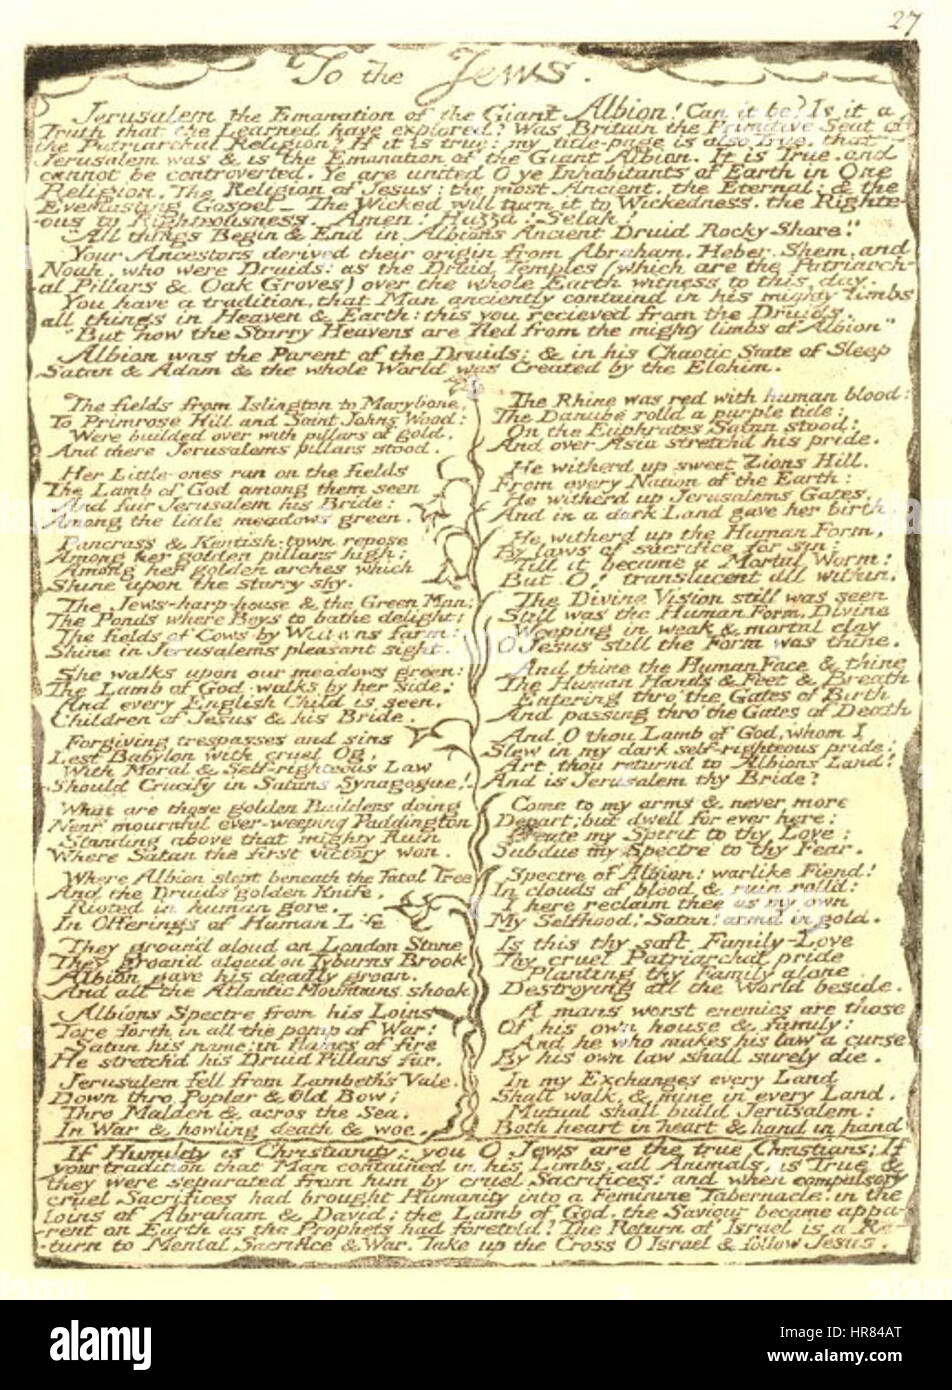 27
To the Jews.
Jerusalem the Emanation of the Giant Albion! Can it be? Is it a
Truth that the Learned have explored? Was Britain the Primitive Seat of
the Patriarchal Religion? If it is true: my title-page is also True, that
Jerusalem was & is the Emanation of the Giant Albion. It is True, and
cannot be controverted. Ye are united O ye Inhabitants of Earth in One
Religion. The Religion of Jesus: the most Ancient, the Eternal: & the
Everlasting Gospel — The Wicked will turn it to Wickedness, the Righte-
-ous to Righteousness. Amen! Huzza! Selah!
"All things Begin & End in Albions Ancient Druid Rocky Shore."
Your Ancestors derived their origin from Abraham, Heber, Shem, and
Noah, who were Druids: as the Druid Temples (which are the Patriarch-
al Pillars & Oak Groves) over the whole Earth witness to this day.
You have a tradition, that Man anciently containd in his mighty limbs
all things in Heaven & Earth: this you recieved from the Druids.
"But now the Starry Heavens are fled from the mighty limbs of Albion"
Albion was the Parent of the Druids; & in his Chaotic State of Sleep
Satan & Adam & the whole World was Created by the Elohim.
The fields from Islington to Marybone,
To Primrose Hill and Saint Johns Wood:
Were builded over with pillars of gold,
And there Jerusalems pillars stood.
Her Little-ones ran on the fields
The Lamb of God among them seen
And fair Jerusalem his Bride:
Among the little meadows green.
Pancrass & Kentish-town repose
Among her golden pillars high:
Among her golden arches which
Shine upon the starry sky.
The Jews-harp-house & the Green Man;
The Ponds where Boys to bathe delight:
The fields of Cows by Willans farm:
Shine in Jerusalems pleasant sight.
She walks upon our meadows green:
The Lamb of God walks by her side:
And every English Child is seen,
Children of Jesus & his Bride.
Forgiving trespasses and sins
Lest Babylon with cruel Og,
With Moral & Self-righteous Law
Should Crucify in Satans Synagogue!
What are those golden Builders doing
Near mournful ever-weeping Paddington
Standing above that mighty Ruin
Where Satan the first victory won.
Where Albion slept beneath the Fatal Tree
And the Druids golden Knife,
Rioted in human gore,
In Offerings of Human Life
They groand aloud on London Stone
They groand aloud on Tyburns Brook
Albion gave his deadly groan,
And all the Atlantic Mountains shook
Albions Spectre from his Loins
Tore forth in all the pomp of War:
Satan his name: in flames of fire
He stretch'd his Druid Pillars far.
Jerusalem fell from Lambeth's Vale,
Down thro Poplar & Old Bow;
Thro Malden & acros the Sea,
In War & howling death & woe.
The Rhine was red with human blood:
The Danube rolld a purple tide:
On the Euphrates Satan stood:
And over Asia stretch'd his pride.
He witherd up sweet Zions Hill,
From every Nation of the Earth:
He witherd up Jerusalems Gates,
And in a dark Land gave her birth.
He witherd up the Human Form,
By laws of sacrifice for sin:
Till it became a Mortal Worm:
But O! translucent all within.
The Divine Vision still was seen
Still was the Human Form, Divine
Weeping in weak & mortal clay
O Jesus still the Form was thine.
And thine the Human Face & thine
The Human Hands & Feet & Breath
Entering thro' the Gates of Birth
And passing thro' the Gates of Death
And O thou Lamb of God, whom I
Slew in my dark self-righteous pride:
Art thou returnd to Albions Land!
And is Jerusalem thy Bride?
Come to my arms & never more
Depart; but dwell for ever here:
Create my Spirit to thy Love:
Subdue my Spectre to thy Fear.
Spectre of Albion! warlike Fiend!
In clouds of blood & ruin roll'd:
I here reclaim thee as my own
My Selfhood! Satan! armd in gold.
Is this thy soft Family-Love
Thy cruel Patriarchal pride
Planting thy Family alone,
Destroying all the World beside.
A mans worst enemies are those
Of his own house & family:
And he who makes his law a curse
By his own law shall surely die.
In my Exchanges every Land
Shall walk, & mine in every Land,
Mutual shall build Jerusalem:
Both heart in heart & hand in hand
If Humility is Christianity; you O Jews are the true Christians; If
your tradition that Man contained in his Limbs, all Animals, is True &
they were separated from him by cruel Sacrifices: and when compulsory
cruel Sacrifices had brought Humanity into a Feminine Tabernacle, in the
loins of Abraham & David: the Lamb of God, the Saviour became appa-
-rent on Earth as the Prophets had foretold? The Return of Israel is a Re-
-turn to Mental Sacrifice & War. Take up the Cross O Israel & follow Jesus.
alamy
Image ID: HR84AT
www.alamy.com